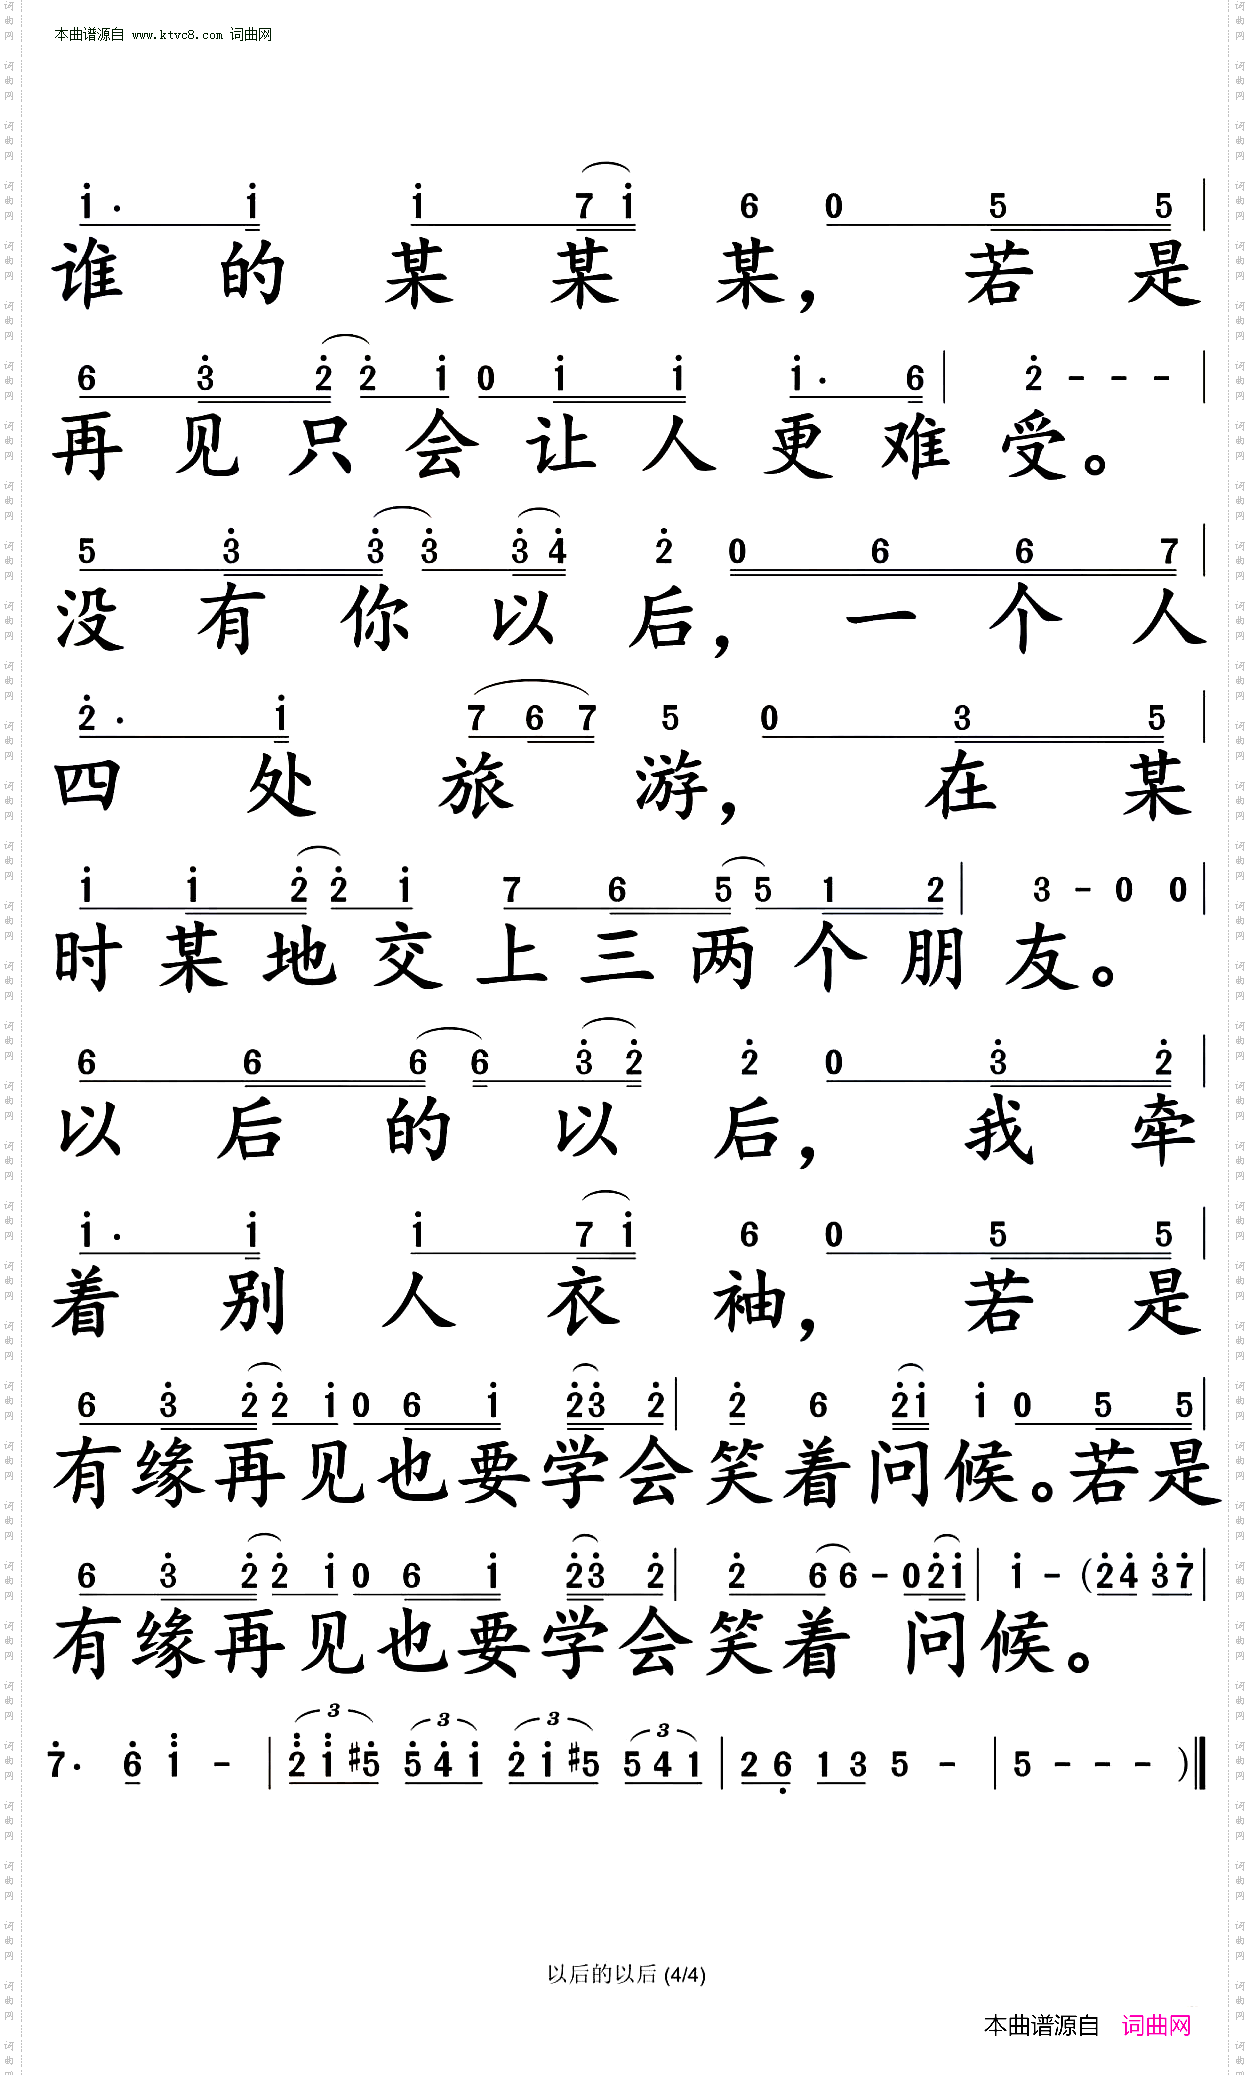 本曲谱源自 www.ktvc8.com 词曲网
i. i i 7 i 6 0 5 5
谁的某某某，若是
6 3̇ 2̇ 2̇ i 0 i i i. 6 | 2̇ - - - |
再见只会让人更难受。
5 3̇ 3̇ 3̇ 3̇ 4̇ 2̇ 0 6 6 7 |
没有你以后，一个人
2̇. i 7 6 7 5 0 3 5 |
四处旅游，在某
i i 2̇ 2̇ i 7 6 5 5 1 2 | 3 - 0 0 |
时某地交上三两个朋友。
6 6 6 6 3̇ 2̇ 2̇ 0 3̇ 2̇ |
以后的以后，我牵
i. i i 7 i 6 0 5 5 |
着别人衣袖，若是
6 3̇ 2̇ 2̇ i 0 6 i 2̇ 3̇ 2̇ | 2̇ 6 2̇ i i 0 5 5 |
有缘再见也要学会笑着问候。若是
6 3̇ 2̇ 2̇ i 0 6 i 2̇ 3̇ 2̇ | 2̇ 6 6 - 0 2̇ i | i - (2̇ 4̇ 3̇ 7̇ |
有缘再见也要学会笑着 问候。
3 3 3 3
7̇. 6̇ i - | 2̇ i #5̇ 5̇ 4̇ i 2̇ i #5 5 4 1 | 2 6̣ 1 3 5 - | 5 - - - )||
以后的以后 (4/4)
本曲谱源自 词曲网